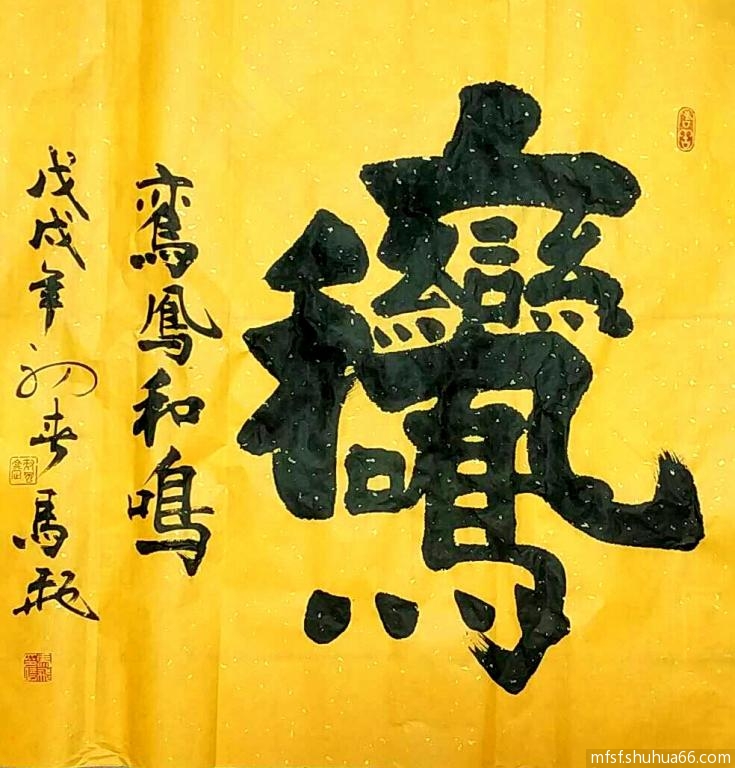 鸾鳳和鳴
戊戌年初春馬飛
mfsfshuhua66.com